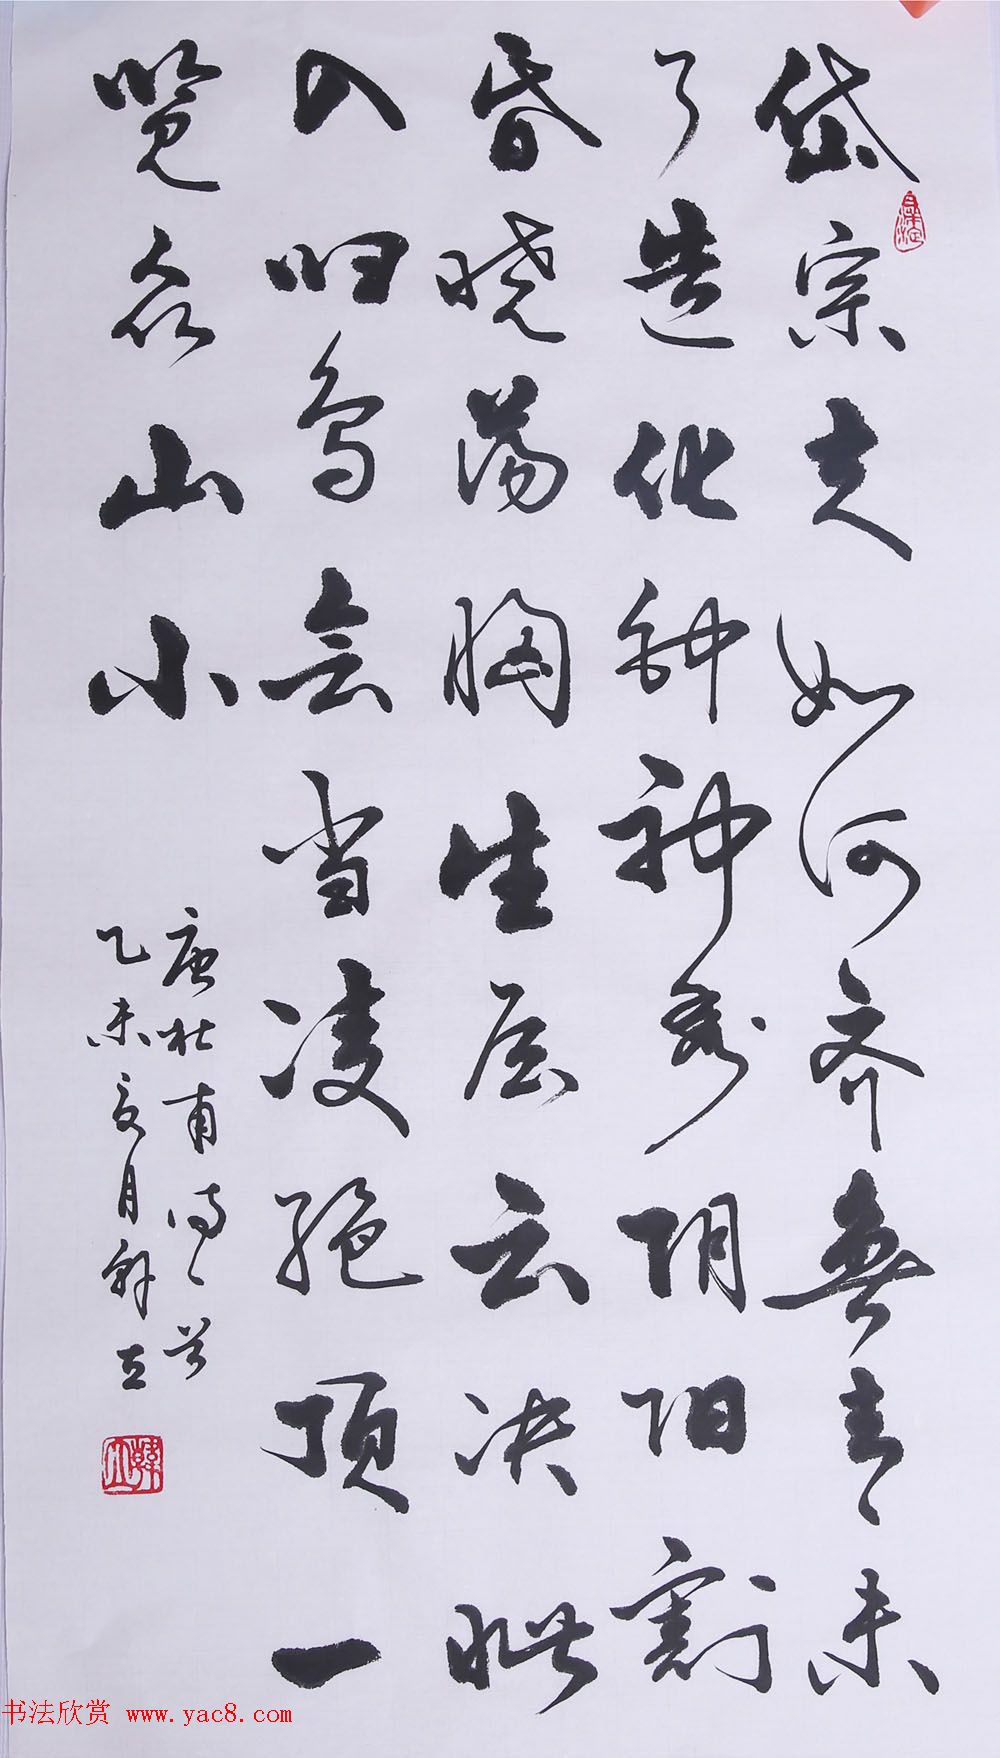 岱宗夫如何齐鲁青未
了造化钟神秀阴阳割
昏晓荡胸生层云决眦
入归鸟会当凌绝顶一
览众山小
唐杜甫诗一首
乙未夏月韩立
韩立
书法欣赏 www.yac8.com